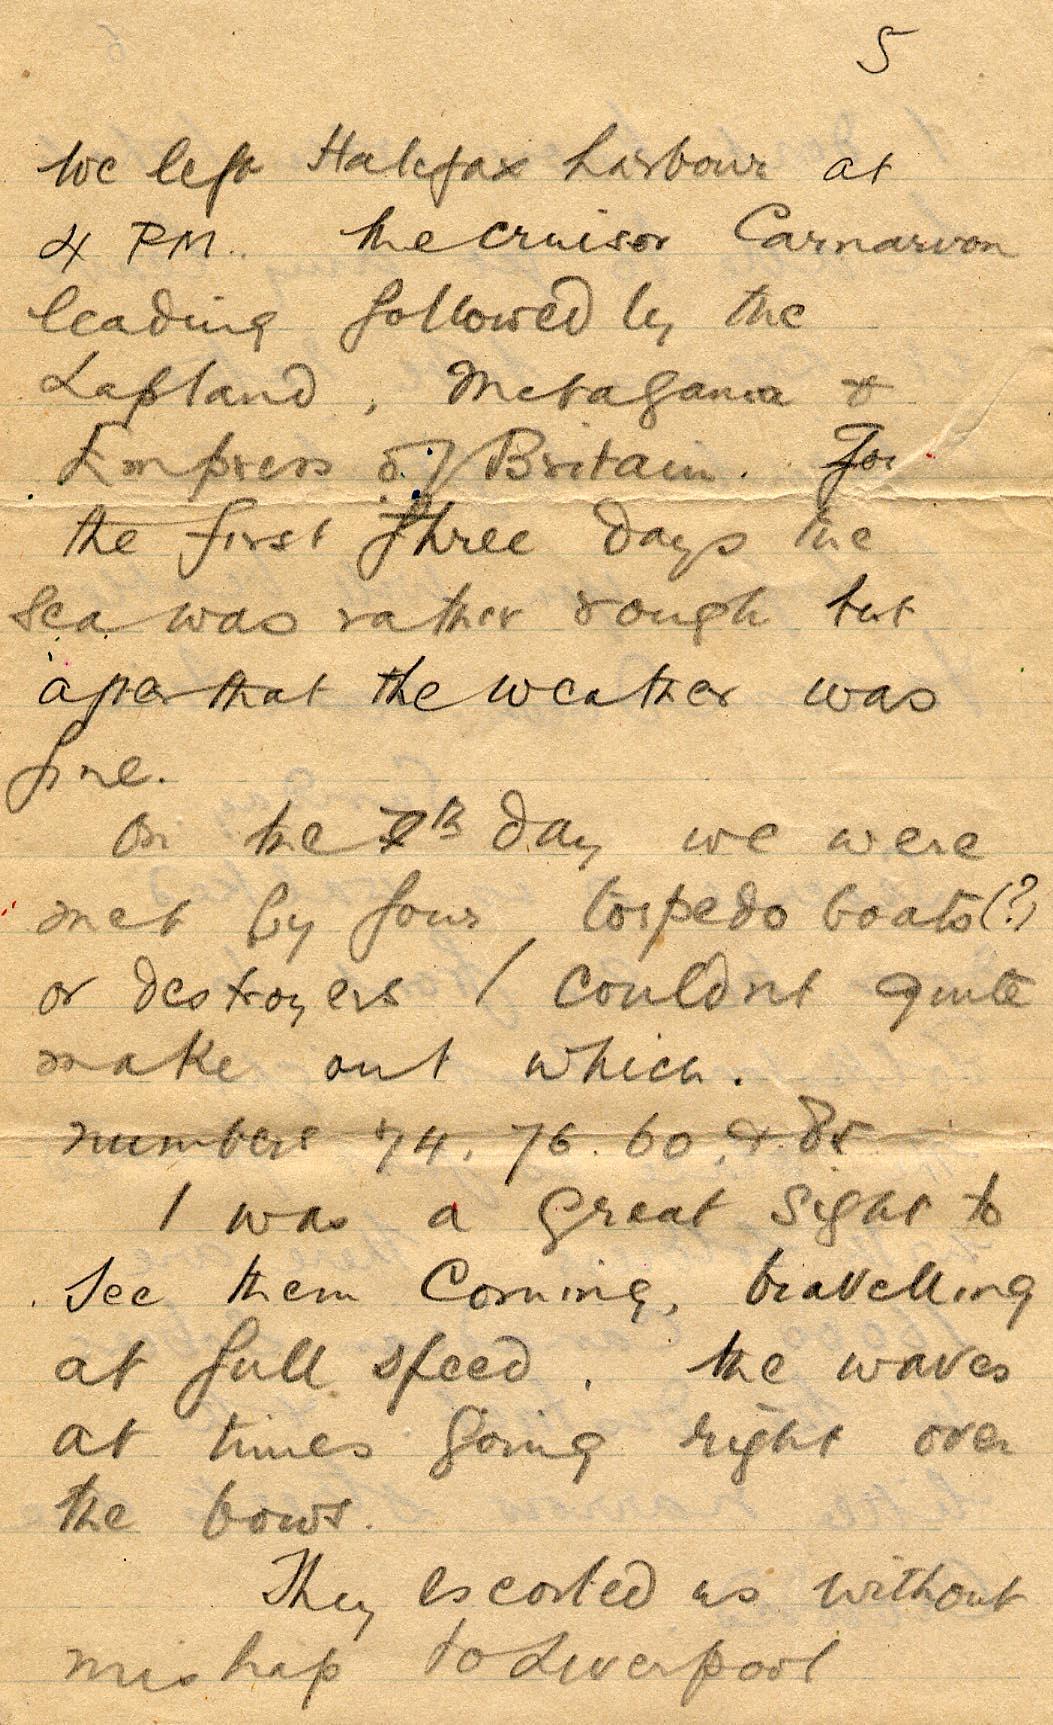 5
We left Halifax harbour at
4 PM. the cruisor Carnarvon
leading followed by the
Lapland, Metagama &
Empress of Britain. For
the first three days the
sea was rather rough but
after that the weather was
fine.
On the day we were
met by four torpedo boats(?)
or destroyers I couldnt quite
make out which.
numbers 74. 76. 60. &
I was a great sight to
see them coming, travelling
at full speed, the waves
at times going right over
the bows.
They escorted us without
mishap to Liverpool